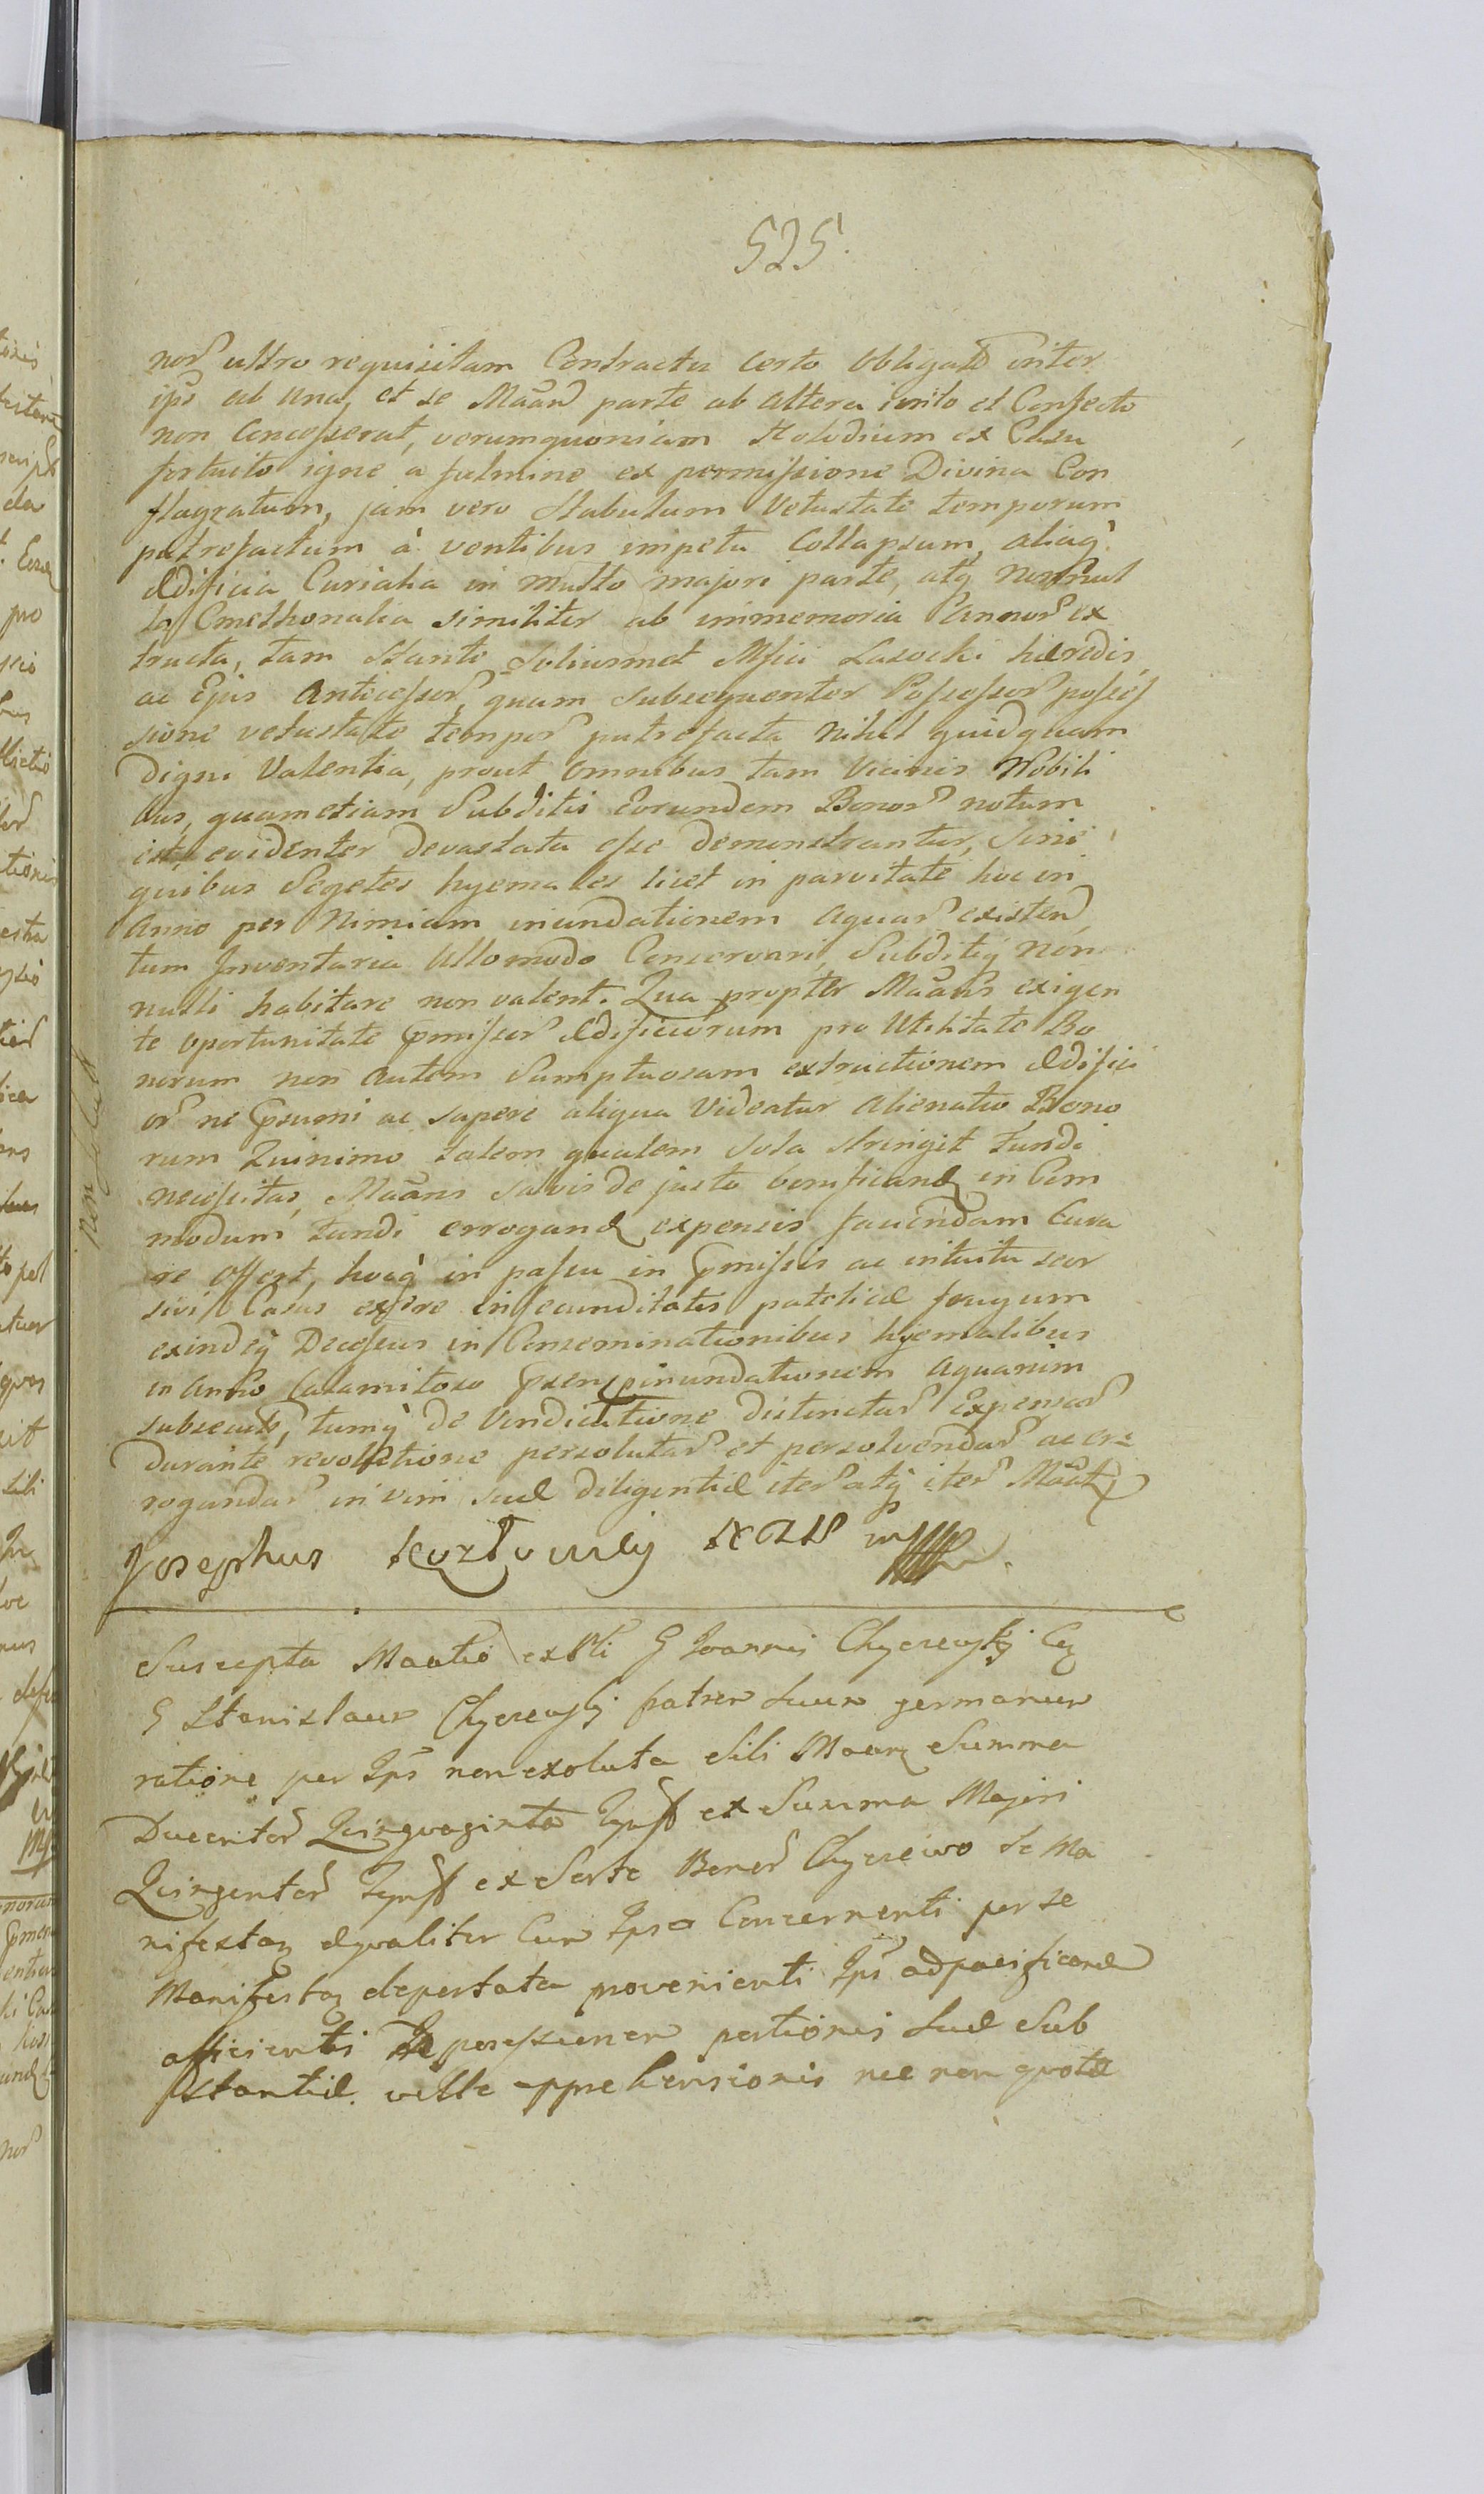 525.
nor ultro requisitam Contractu certo obligato inter
ips ab una, et se Maan parte ab altera inito et Confecto
non Concesserat, verumquoniam Holodium ex Casu
fortuito igne a fulmine ex permissione Divina Con
flagratum, jam vero Stabulum Vetustate temporum
putrefactum à ventibus impetu Collapsum, aliaq
ædificia Curialia in multo majori parte, atq nonnul
la Cmethonalia similiter ab immemoria Annor ex
tracta, tam Stante Soliusmet Msici Lasocki hæredis,
ac Ejus Antecessor, quam subsequenter Possessor posses
sione vetustate tempor putrefacta nihil quidquam
Digni Valentia, prout omnibus tam Vicinis Nobili
bus, quametiam Subditis Eorundem Bonor notum
est, evidenter devastata esse demonstrantur, Sine
quibus Segetes hyemales licet in parvitate hoc in
Anno per Nimiam inundationem Aquar existen
tum Inventaria Ullomodo Conservari, Subditiq non
nulli habitare non valent. Qua propter Maans exigen
te oportunitate pmissor ædificiorum pro Utilitate Bo
norum non autem Sumptuosam extructionem ædifici
or ne psumi ac sapere aliqua Videatur Alienatio Bono
rum Quinimo talem qualem sola stringit fundi
necessitas, Maans salvis de justo bonificand in Com
modum fundi errogand expensis faciendam Cura
re offert, hocq in passu in pmissis ac intuitu scor
sivi Casus infecunditatis frugum
exindeq Decessus in Conseminationibus hyemalibus
in Anno Calamitoso inundationem Aquarum
subsecuts, tumq de Vendicatione distinctar Expensar
durante revolutione persolutar et persolvendar ac er=
rogandar in vim suæ diligentiæ iter atq iter Maatq
Josephus
non solut
Suscepta Maatio ex Pti G Joannis Chyczewskj Cq
G Stanislaum Chyczewskj fratrem Suum germanum
ratione per Ips non exoluta Sibi Maanq Summa
Ducentor Quinquaginta Tynff ex Summa Majori
Quingentor Tynff ex Sorte Bonor Chyczewo se Ma
nifestaq æqualiter Cum Ipso Concernenti per se
Manifestaq deportata provenienti Ips adpacificand
afficienti possessionem portionis Suæ Sub
stantiæ velle apprehensionis nec non quotæ